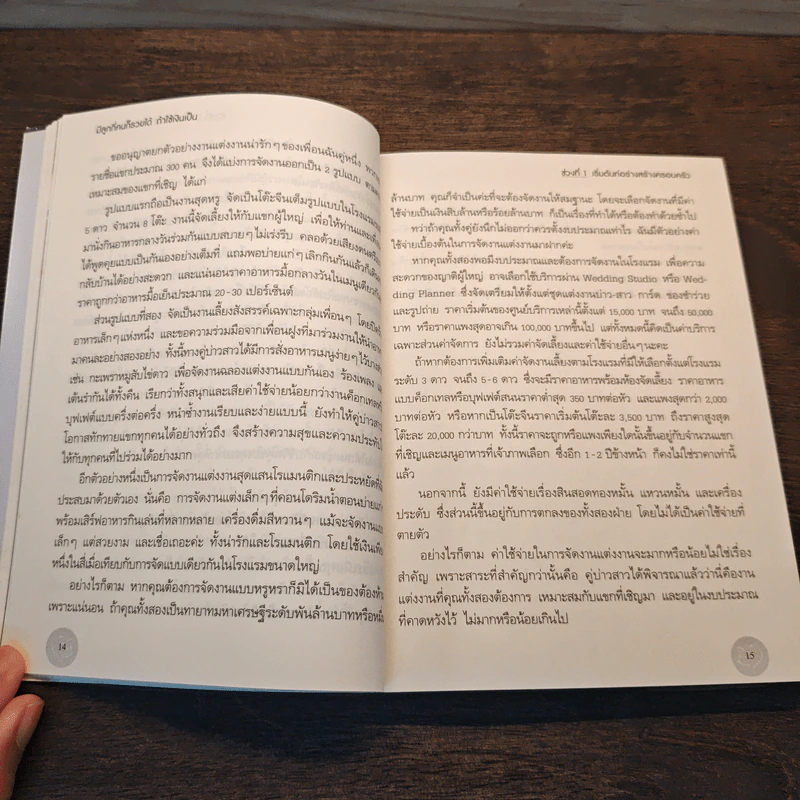 มีลูกกี่คนก็รวยได้ ถ้าใช้เงินเป็น
ขออนุญาตยกตัวอย่างงานแต่งงานน่ารักๆ ของเพื่อนฉันคู่หนึ่ง
รายชื่อแขกประมาณ 300 คน จึงได้แบ่งการจัดงานออกเป็น 2 รูปแบบ
เหมาะสมของแขกที่เชิญ ได้แก่
รูปแบบแรกถือเป็นงานสุดหรู จัดเป็นโต๊ะจีนเต็มรูปแบบในโรงแรม
5 ดาว จำนวน 8 โต๊ะ งานนี้จัดเลี้ยงให้กับแขกผู้ใหญ่ เพื่อให้ท่านและเพื่อน
มานั่งกินอาหารกลางวันร่วมกันแบบสบายๆ ไม่เร่งรีบ คลอด้วยเสียงดนตรี
ได้พูดคุยแบบเป็นกันเองอย่างเต็มที่ แถมพอบ่ายแก่ๆ เลิกกินกันแล้วก็เดิน
กลับบ้านได้อย่างสะดวก และแน่นอนราคาอาหารมื้อกลางวันในเมนูเดียวกัน
ราคาถูกกว่าอาหารมื้อเย็นประมาณ 20-30 เปอร์เซ็นต์
ส่วนรูปแบบที่สอง จัดเป็นงานเลี้ยงสังสรรค์เฉพาะกลุ่มเพื่อนๆ โดยปิด
อาหารเล็กๆ แห่งหนึ่ง และขอความร่วมมือจากเพื่อนฝูงที่มาร่วมงานให้นำ
มาคนละอย่างสองอย่าง ทั้งนี้ทางคู่บ่าวสาวได้มีการสั่งอาหารเมนูง่ายๆ ไว้
เช่น กะเพราหมูสับไข่ดาว เพื่อให้งานฉลองแต่งงานแบบกันเอง ร้องเพลง
เต้นรำกันได้ทั้งคืน เรียกว่าทั้งสนุกและเสียค่าใช้จ่ายน้อยกว่างานค็อกเทล
บุฟเฟต์แบบครึ่งต่อครึ่ง หนำซ้ำงานเรียบและง่ายแบบนี้ ยังทำให้คู่บ่าวสาว
โอกาสทักทายแขกทุกคนได้อย่างทั่วถึง จึงสร้างความสุขและความประทับ
ให้กับทุกคนที่ไปร่วมได้อย่างมาก
อีกตัวอย่างหนึ่งเป็นการจัดงานแต่งงานสุดแสนโรแมนติกและประหยัดที่
ประสบมาด้วยตัวเอง นั่นคือ การจัดงานแต่งเล็กๆ ที่คอนโดริมน้ำตอนบ่าย
พร้อมเสิร์ฟอาหารกินเล่นที่หลากหลาย เครื่องดื่มสีหวานๆ แม้จะจัดงานแบบ
เล็กๆ แต่สวยงาม และเชื่อเถอะค่ะ ทั้งน่ารักและโรแมนติก โดยใช้เงินเพียง
หนึ่งในสี่เมื่อเทียบกับการจัดแบบเดียวกันในโรงแรมขนาดใหญ่
อย่างไรก็ตาม หากคุณต้องการจัดงานแบบหรูหราก็มิได้เป็นของต้องห้าม
เพราะแน่นอน ถ้าคุณทั้งสองเป็นทายาทมหาเศรษฐีระดับพันล้านบาทหรือหมื่น
14
ช่วงที่ 1 เริ่มต้นก่อร่างสร้างครอบครัว
ล้านบาท คุณก็จำเป็นค่ะที่จะต้องจัดงานให้สมฐานะ โดยจะเลือกจัดงานที่มีค่า
ใช้จ่ายเป็นเงินสิบล้านหรือร้อยล้านบาท ก็เป็นเรื่องที่ทำได้หรือต้องทำด้วยซ้ำไป
ทว่าถ้าคุณทั้งคู่ยังนึกไม่ออกว่าควรตั้งงบประมาณเท่าไร ฉันมีตัวอย่างค่า
ใช้จ่ายเบื้องต้นในการจัดงานแต่งงานมาฝากค่ะ
หากคุณทั้งสองพอมีงบประมาณและต้องการจัดงานในโรงแรม เพื่อความ
สะดวกของญาติผู้ใหญ่ อาจเลือกใช้บริการผ่าน Wedding Studio หรือ Wed-
ding Planner ซึ่งจัดเตรียมให้ตั้งแต่ชุดแต่งงานบ่าว-สาว การ์ด ของชำร่วย
และรูปถ่าย ราคาเริ่มต้นของศูนย์บริการเหล่านี้ตั้งแต่ 15,000 บาท จนถึง 50,000
บาท หรือราคาแพงสุดอาจเกิน 100,000 บาทขึ้นไป แต่ทั้งหมดนี้คิดเป็นค่าบริการ
เฉพาะส่วนค่าจัดการ ยังไม่รวมค่าจัดเลี้ยงและค่าใช้จ่ายอื่นๆ นะคะ
ถ้าหากต้องการเพิ่มเติมค่าจัดงานเลี้ยงตามโรงแรมที่มีให้เลือกตั้งแต่โรงแรม
ระดับ 3 ดาว จนถึง 5-6 ดาว ซึ่งจะมีราคาอาหารพร้อมห้องจัดเลี้ยง ราคาอาหาร
แบบค็อกเทลหรือบุฟเฟต์สนนราคาต่ำสุด 350 บาทต่อหัว และแพงสุดกว่า 2,000
บาทต่อหัว หรือหากเป็นโต๊ะจีนราคาเริ่มต้นโต๊ะละ 3,500 บาท ถึงราคาสูงสุด
โต๊ะละ 20,000 กว่าบาท ทั้งนี้ราคาจะถูกหรือแพงเพียงใดนั้นขึ้นอยู่กับจำนวนแขก
ที่เชิญและเมนูอาหารที่เจ้าภาพเลือก ซึ่งอีก 1-2 ปีข้างหน้า ก็คงไม่ใช่ราคาเท่านี้
แล้ว
นอกจากนี้ ยังมีค่าใช้จ่ายเรื่องสินสอดทองหมั้น แหวนหมั้น และเครื่อง
ประดับ ซึ่งส่วนนี้ขึ้นอยู่กับการตกลงของทั้งสองฝ่าย โดยไม่ได้เป็นค่าใช้จ่ายที่
ตายตัว
อย่างไรก็ตาม ค่าใช้จ่ายในการจัดงานแต่งงานจะมากหรือน้อยไม่ใช่เรื่อง
สำคัญ เพราะสาระที่สำคัญกว่านั้นคือ คู่บ่าวสาวได้พิจารณาแล้วว่านี่คืองาน
แต่งงานที่คุณทั้งสองต้องการ เหมาะสมกับแขกที่เชิญมา และอยู่ในงบประมาณ
ที่คาดหวังไว้ ไม่มากหรือน้อยเกินไป
15